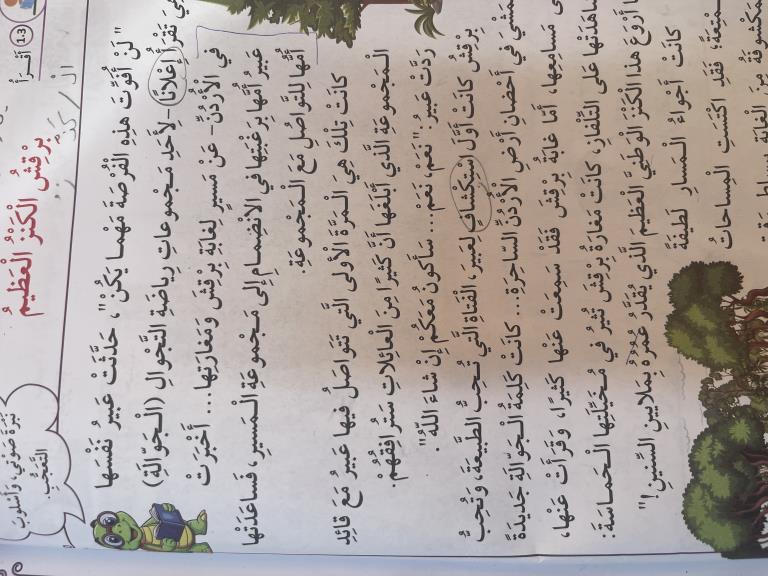 1.3 أَقْرَأُ
نَبْرَةِ صَوْتي، وَأُسْلوبَ
التَّعَجُّبِ.
بِرْقِشُ الْكَنْزُ الْعَظيمُ
"لَنْ أُفَوِّتَ هَذِهِ الْفُرْصَةَ مَهْما يَكُنْ"، حَدَّثَتْ عَبيرُ نَفْسَها
تَقْرَأُ إِعْلانًا -لِأَحَدِ مَجْموعاتِ رِياضَةِ التَّجْوالِ (الْجَوّالَةِ)
في الْأُرْدُنِّ- عَنْ مَسيرٍ لِغابَةِ بِرْقِشَ وَمَغارَتِها... أَخْبَرَتْ
عَبيرُ أُمَّها بِرَغْبَتِها في الِانْضِمامِ إِلى مَجْموعَةِ الْمَسيرِ، فَساعَدَتْها
أُمُّها لِلتَّواصُلِ مَعَ الْمَجْموعَةِ.
كانَتْ تِلْكَ هِيَ الْمَرَّةَ الْأولى الَّتي تَتَواصَلُ فيها عَبيرُ مَعَ قائِدِ
الْمَجْموعَةِ الَّذي أَبْلَغَها أَنَّ كَثيرًا مِنَ الْعائِلاتِ سَتُرافِقُهُمْ.
رَدَّتْ عَبيرُ: "نَعَمْ، نَعَمْ... سَأَكونُ مَعَكُمْ إِنْ شاءَ اللّٰهُ".
بِرْقِشُ كانَتْ أَوَّلَ اسْتِكْشافٍ لِعَبيرَ، الْفَتاةِ الَّتي تُحِبُّ الطَّبيعَةَ، وَتُحِبُّ
في أَحْضانِ أَرْضِ الْأُرْدُنِّ السّاحِرَةِ... كانَتْ كَلِمَةُ الْجَوّالَةِ جَديدَةً
مَسامِعِها، أَمّا غابَةُ بِرْقِشَ فَقَدْ سَمِعَتْ عَنْها كَثيرًا، وَقَرَأَتْ عَنْها،
عَلى التِّلْفازِ، كانَتْ مَغارَةُ بِرْقِشَ تُثيرُ في مُخَيِّلَتِها الْحَماسَةَ:
أَرْوَعَ هذا الْكَنْزَ الْوَطَنِيَّ الْعَظيمَ الَّذي يُقَدَّرُ عُمُرُهُ بِمَلايينِ السِّنينِ!"
كانَتْ أَجْواءُ الْمَسارِ لَطيفَةً
فَقَدْ اكْتَسَتِ الْمِساحاتُ
مِنَ الْغابَةِ